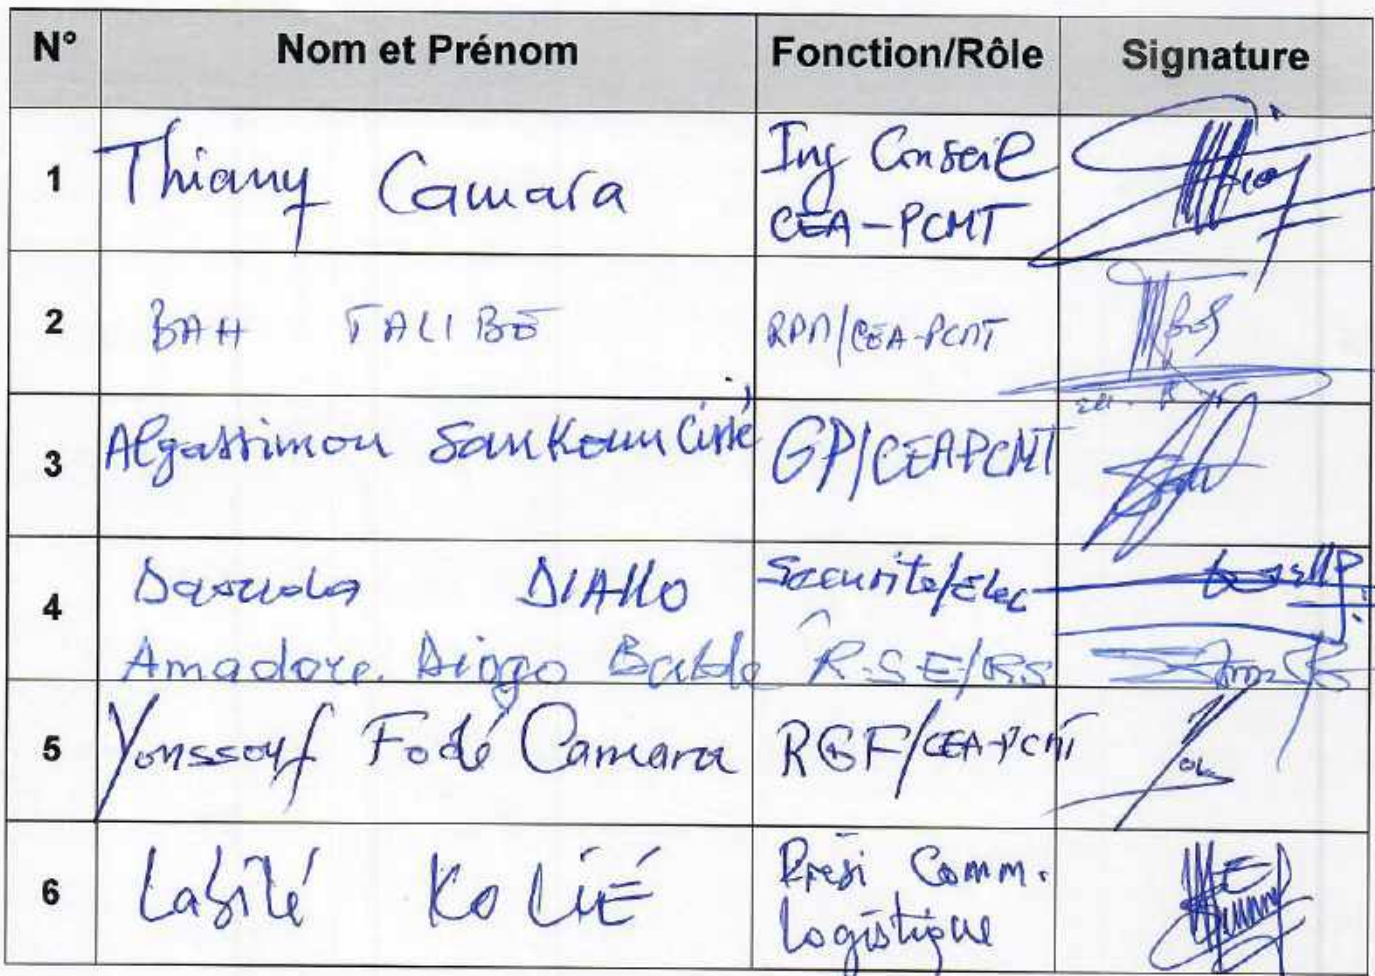 N° Nom et Prénom Fonction/Rôle Signature
1 Thiany Camara Ing Conseil
CEA-PCMT
2 BAH TALIBÉ RPM/CEA-PCMT
3 Algassimou Sankoun Cissé GP/CEAPCMT
4 Daouda DIALLO Securite/Elec
Amadore Diogo Balde R.S.E/RS
5 Youssouf Fodé Camara RGF/CEA-PCMT
6 Labilé KOLIÉ Presi Comm.
Logistique